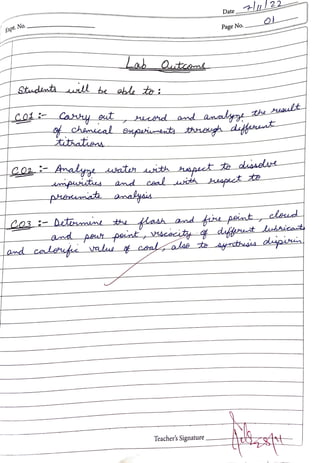 Date 2/11/22
Expt. No.
Page No. 01
Lab Outcome
Students will be able to :
CO1 :- Carry out , record and analyze the result
of chemical experiments through different
titrations
CO2 :- Analyze water with respect to dissolve
impurities and coal with respect to
proximate analysis
CO3 :- Determine the flash and fire point , cloud
and pour point , viscocity of different lubricants
and calorific value of coal , also to synthesis dispirin
Teacher's Signature